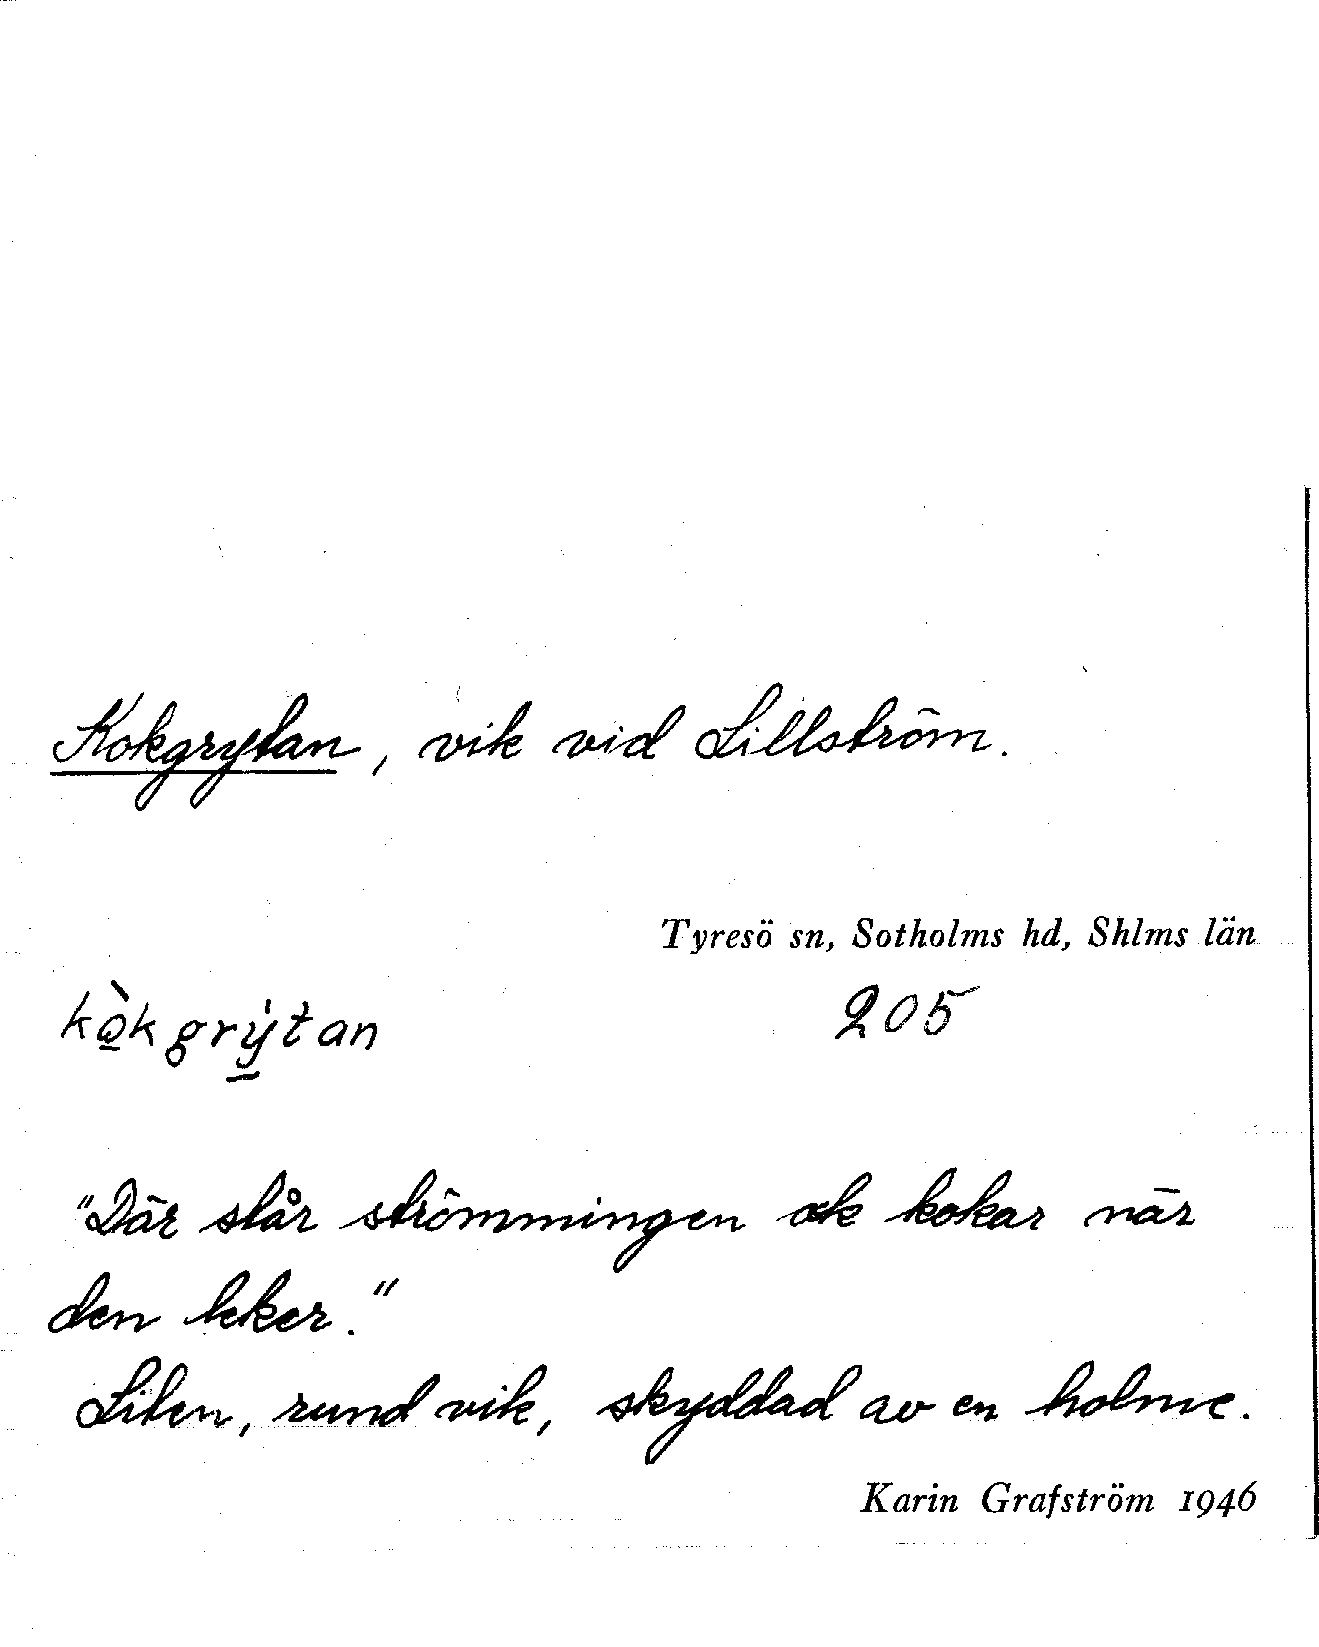 Kokgrytan, vik vid Lillström.
Tyresö sn, Sotholms hd, Shlms län
kòkgrýtan 205
"Där står strömmingen ok kokar när
den leker."
Liten, rund vik, skyddad av en holme.
Karin Grafström 1946